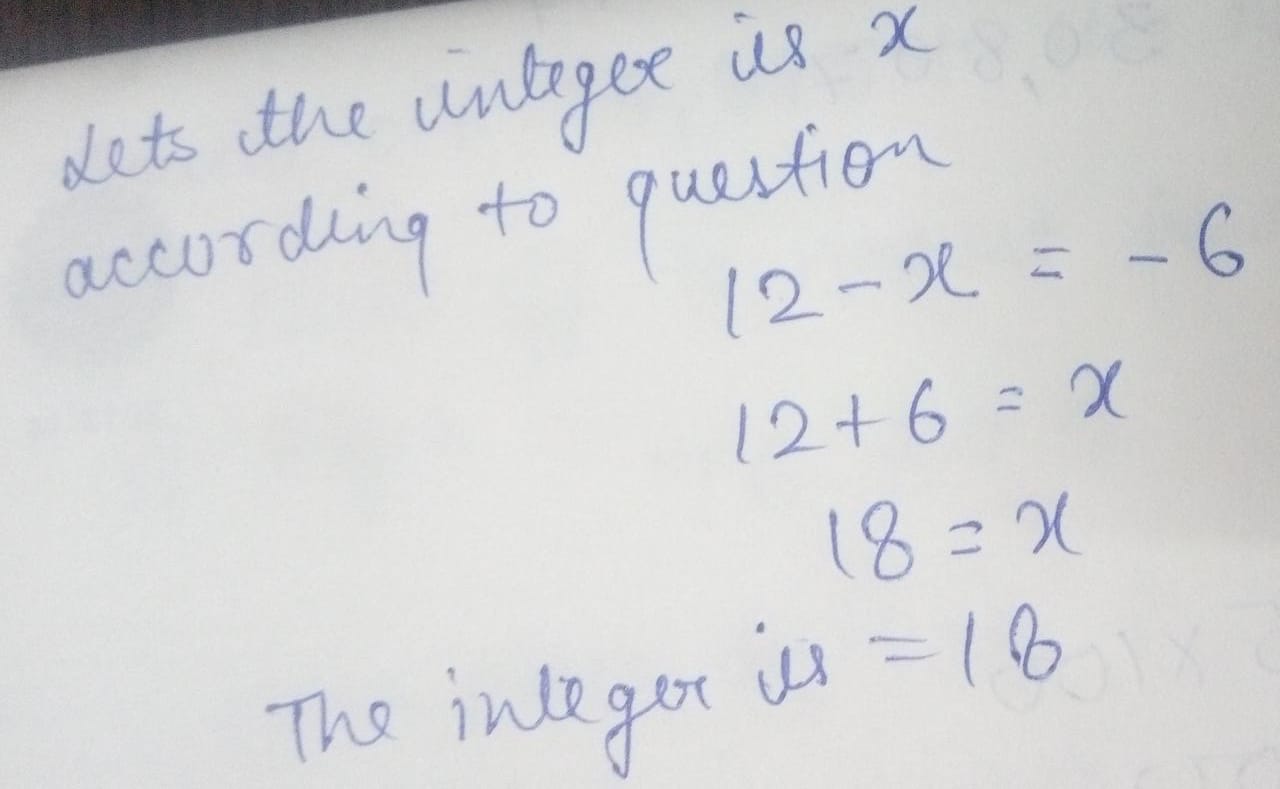 Lets the integer is x
according to question
12 - x = - 6
12 + 6 = x
18 = x
The integer is = 18